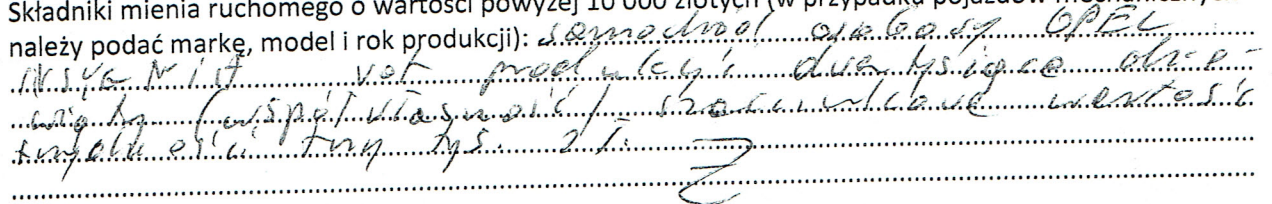 Składniki mienia ruchomego o wartości powyżej 10 000 złotych (w przypadku pojazdów mechanicznych
należy podać markę, model i rok produkcji): samochód osobowy OPEL
INSYGNIA rok produkcji dwa tysiące dzie-
wiąty (współwłasność) szacunkowa wartość
trzydzieści trzy tys. zł.